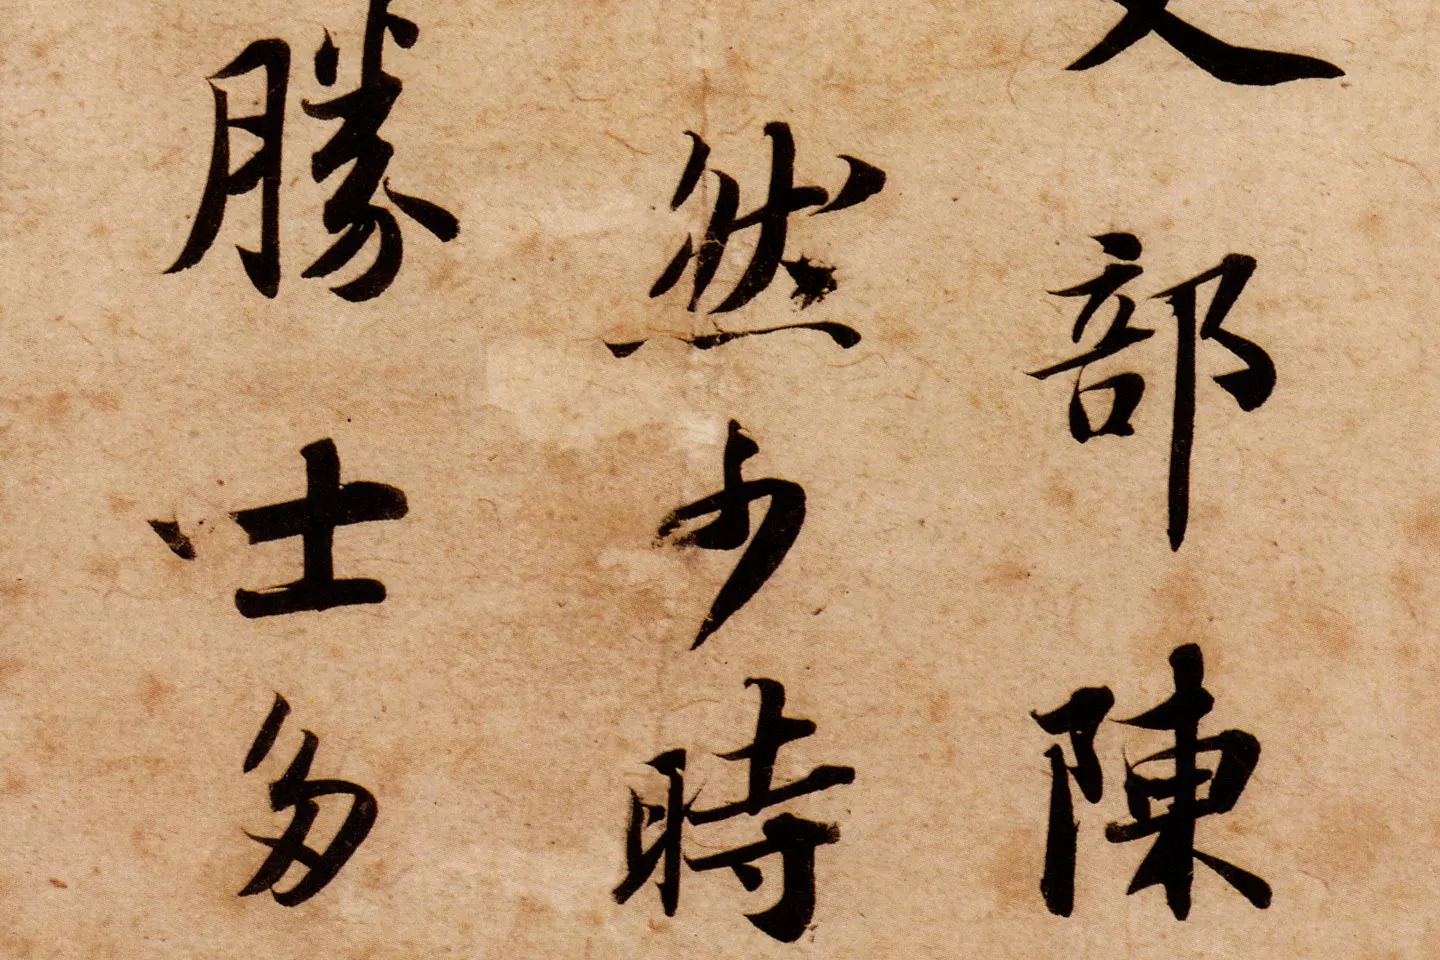 部陳
然少時
勝士多